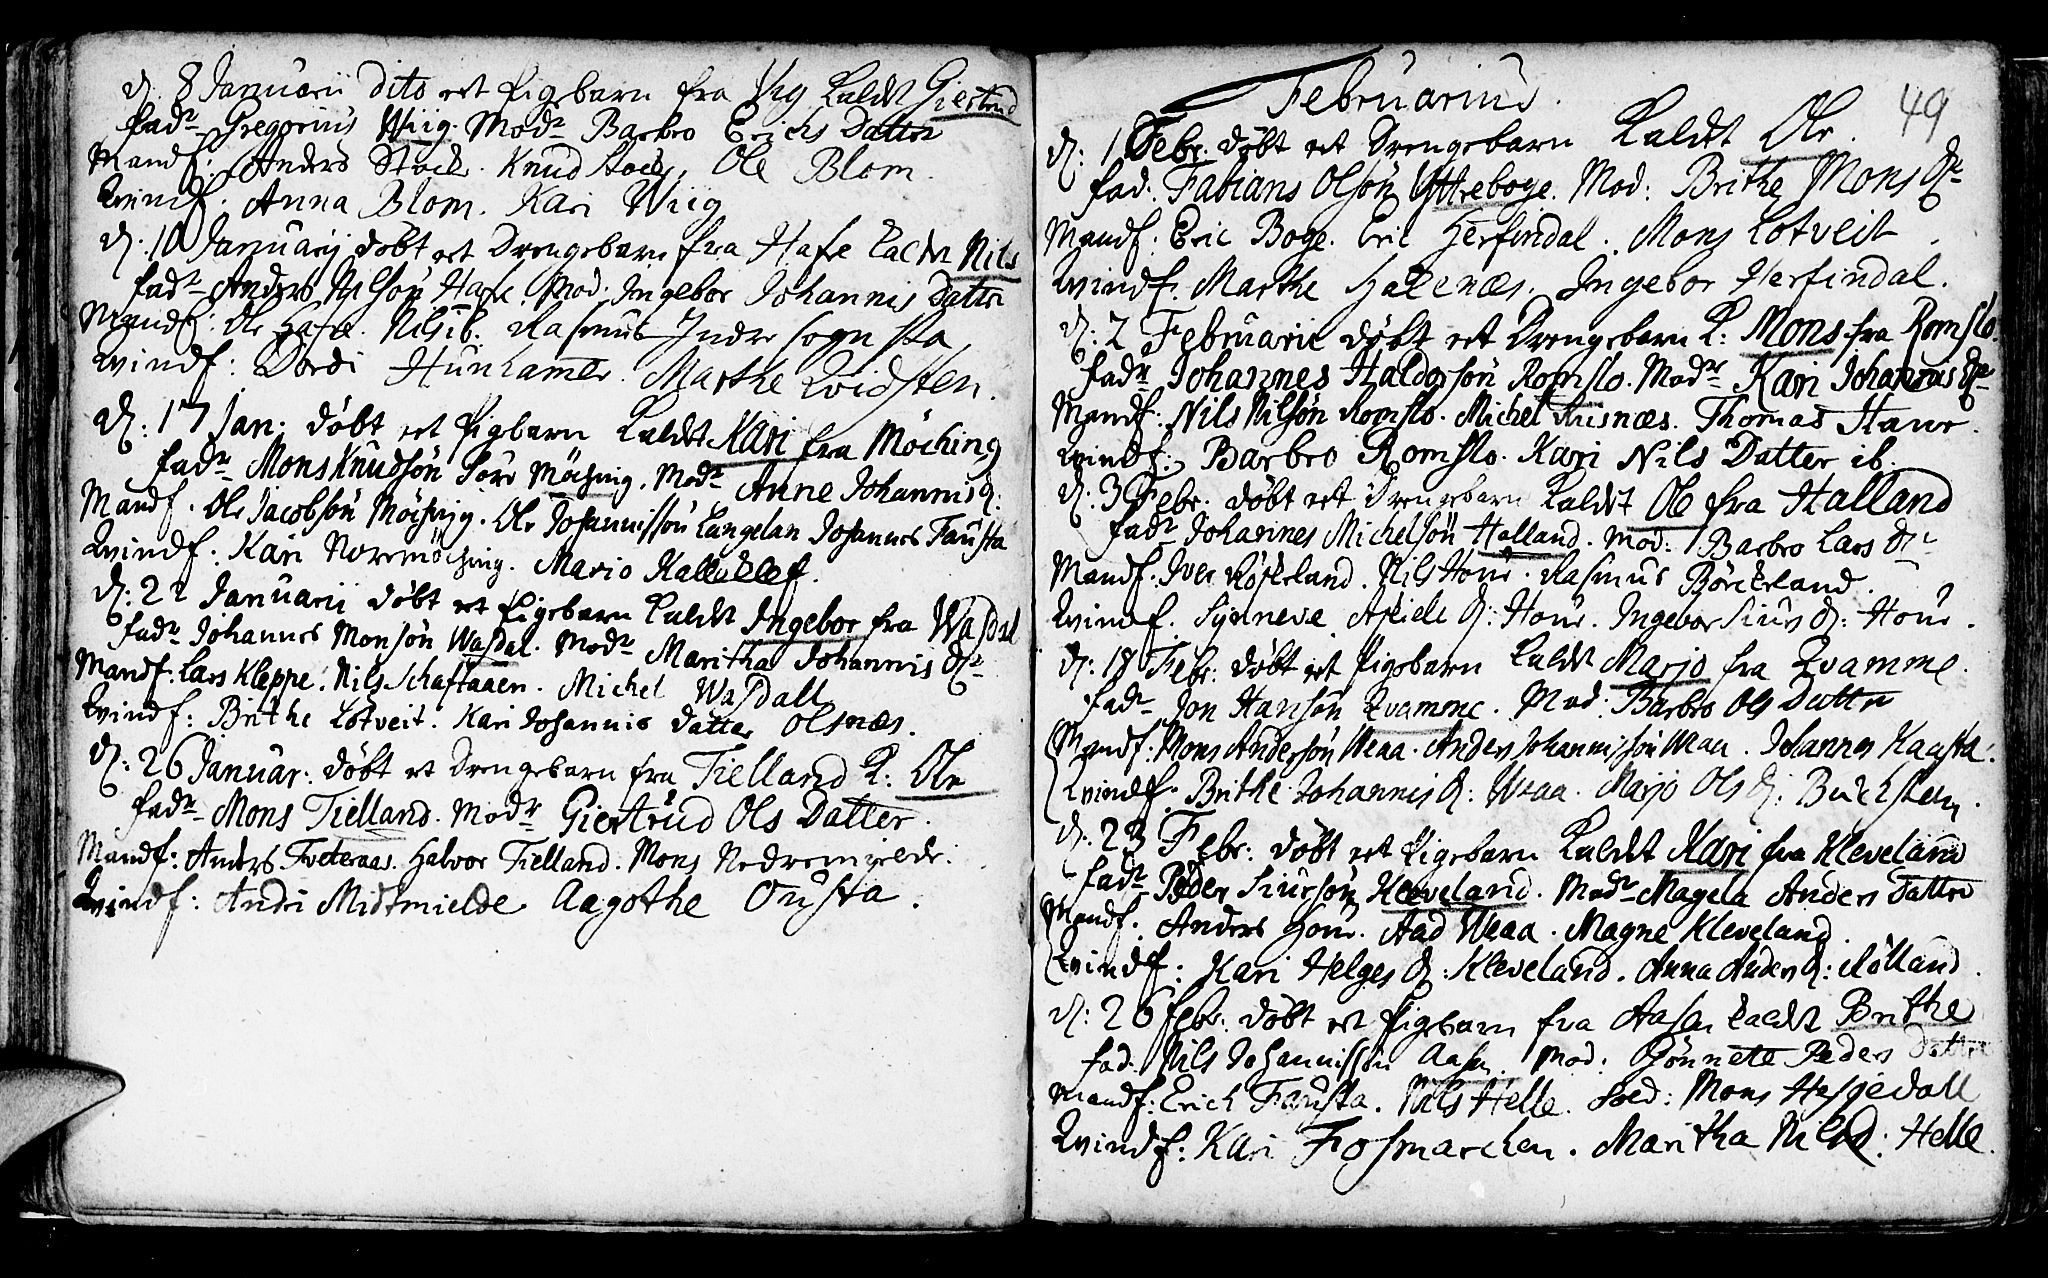 d. 8 Januarii dito et Pigebarn fra Vig kaldt Giertrud
fadr Gregorius Wiig. Modr Barbro Erichs Datter
Mandf: Anders Stoch. Knud Stoch. Ole Blom.
Kvindf. Anna Blom. Kari Wiig
d: 10 Januarij döbt et Drengebarn fra Hafe kaldt Nils
fadr Anders Nilsön Hafe. Mod: Ingebor Johannis Datter
Mandf: Ole Hafe. Nils ib. Rasmus Indre sogn sta
Kvindf: Dordi Hunhamer. Marthe Kvidsten.
d: 17 Jan: döbt et Pigbarn kaldt Kari fra Möching
fadr Mons Knudsön Möching. Modr Anne Johannis d:
Mandf. Ole Jacobsön Möching. Ole Johannissön Langelan Johannes Fausta
Kvindf: Kari Noremöching. Mario Kalleklef.
d: 22 Januarii döbt et Pigebarn kaldt Ingebor fra Wasdal
fadr Johannes Monsön Wasdal. Modr Maritha Johannis dr
Mandf: Lars Kleppe. Nils Schaftaaen. Michel Wasdall
Kvindf: Brithe Lotveit. Kari Johannis datter Olsnæs.
d: 26 Januar: döbt et Drengebarn fra Tielland K: Ole
fadr Mons Tielland. Modr Giertrüd Ols Datter.
Mandf: Anders Tveteraas. Halvor Tielland. Mons Nedremielde.
Kvindf: Andri Midtmielde Aagothe Ousta.
Februarius.
49
d: 1 Febr. döbt et Drengebarn kaldt Ole.
fad: Fabians Olsön Yttreboge. Mod: Brithe Mons dr
Mandf: Eric Boge. Eric Herfindal. Mons Lotveit.
Kvindf. Marthe Halenæs. Ingebor Herfindal.
d: 2 Februarii döbt et Drengebarn K: Mons fra Romslo.
fadr Johannes Haldorsön Romslo. Modr Kari Johannis dr
Mandf: Nils Nilsön Romslo. Michel Rusnæs. Thomas Hawe.
Kvindf: Barbro Romslo. Kari Nils Datter ib.
d: 3 Febr. döbt et Drengebarn kaldt Ole fra Halland
fadr Johannes Michelsön Halland. Mod: Barbro Lars dr
Mandf: Iver Röskeland. Nils Houe. Rasmus Börckeland.
Kvindf. Synneve Askiels d: Houe. Ingebor Siurs d: Houe.
d: 18 Febr: döbt et Pigebarn kaldt Marjo fra Kvamme.
fadr Jon Hansön Kvamme. Mod: Barbro Ols Datter
Mandf: Mons Andersön Weaa. Anders Johannissön Weaa. Johannes Kausta.
Kvindf. Brithe Johannis d: Weaa. Marjo Ols d: Buchsteen.
d: 23 Febr: döbt et Pigebarn kaldt Kari fra Kleveland
fadr Peder Siursön Kleveland. Modr Magela Anders Datter
Mandf. Anders Houe. Aad Weaa. Magne Kleveland.
Kvindf: Kari Helges d: Kleveland. Anna Anders d: Rölland.
d: 26 febr. döbt et Pigebarn fra Aasen kaldt Brithe
fad. Nils Johannissön Aasen. Mod: Gjönnete Peders Datter
Mandf: Erich Fausta. Nils Helle. Sved: Mons Hesjedall
Kvindf: Kari Fosmarchen. Maritha Nils d: Helle.